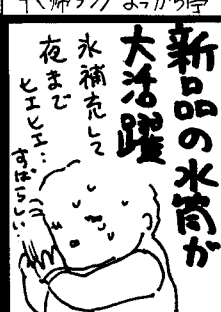 新品の水筒が
大活躍
氷補充して
夜まで
ヒエヒエ…
すばらしい…